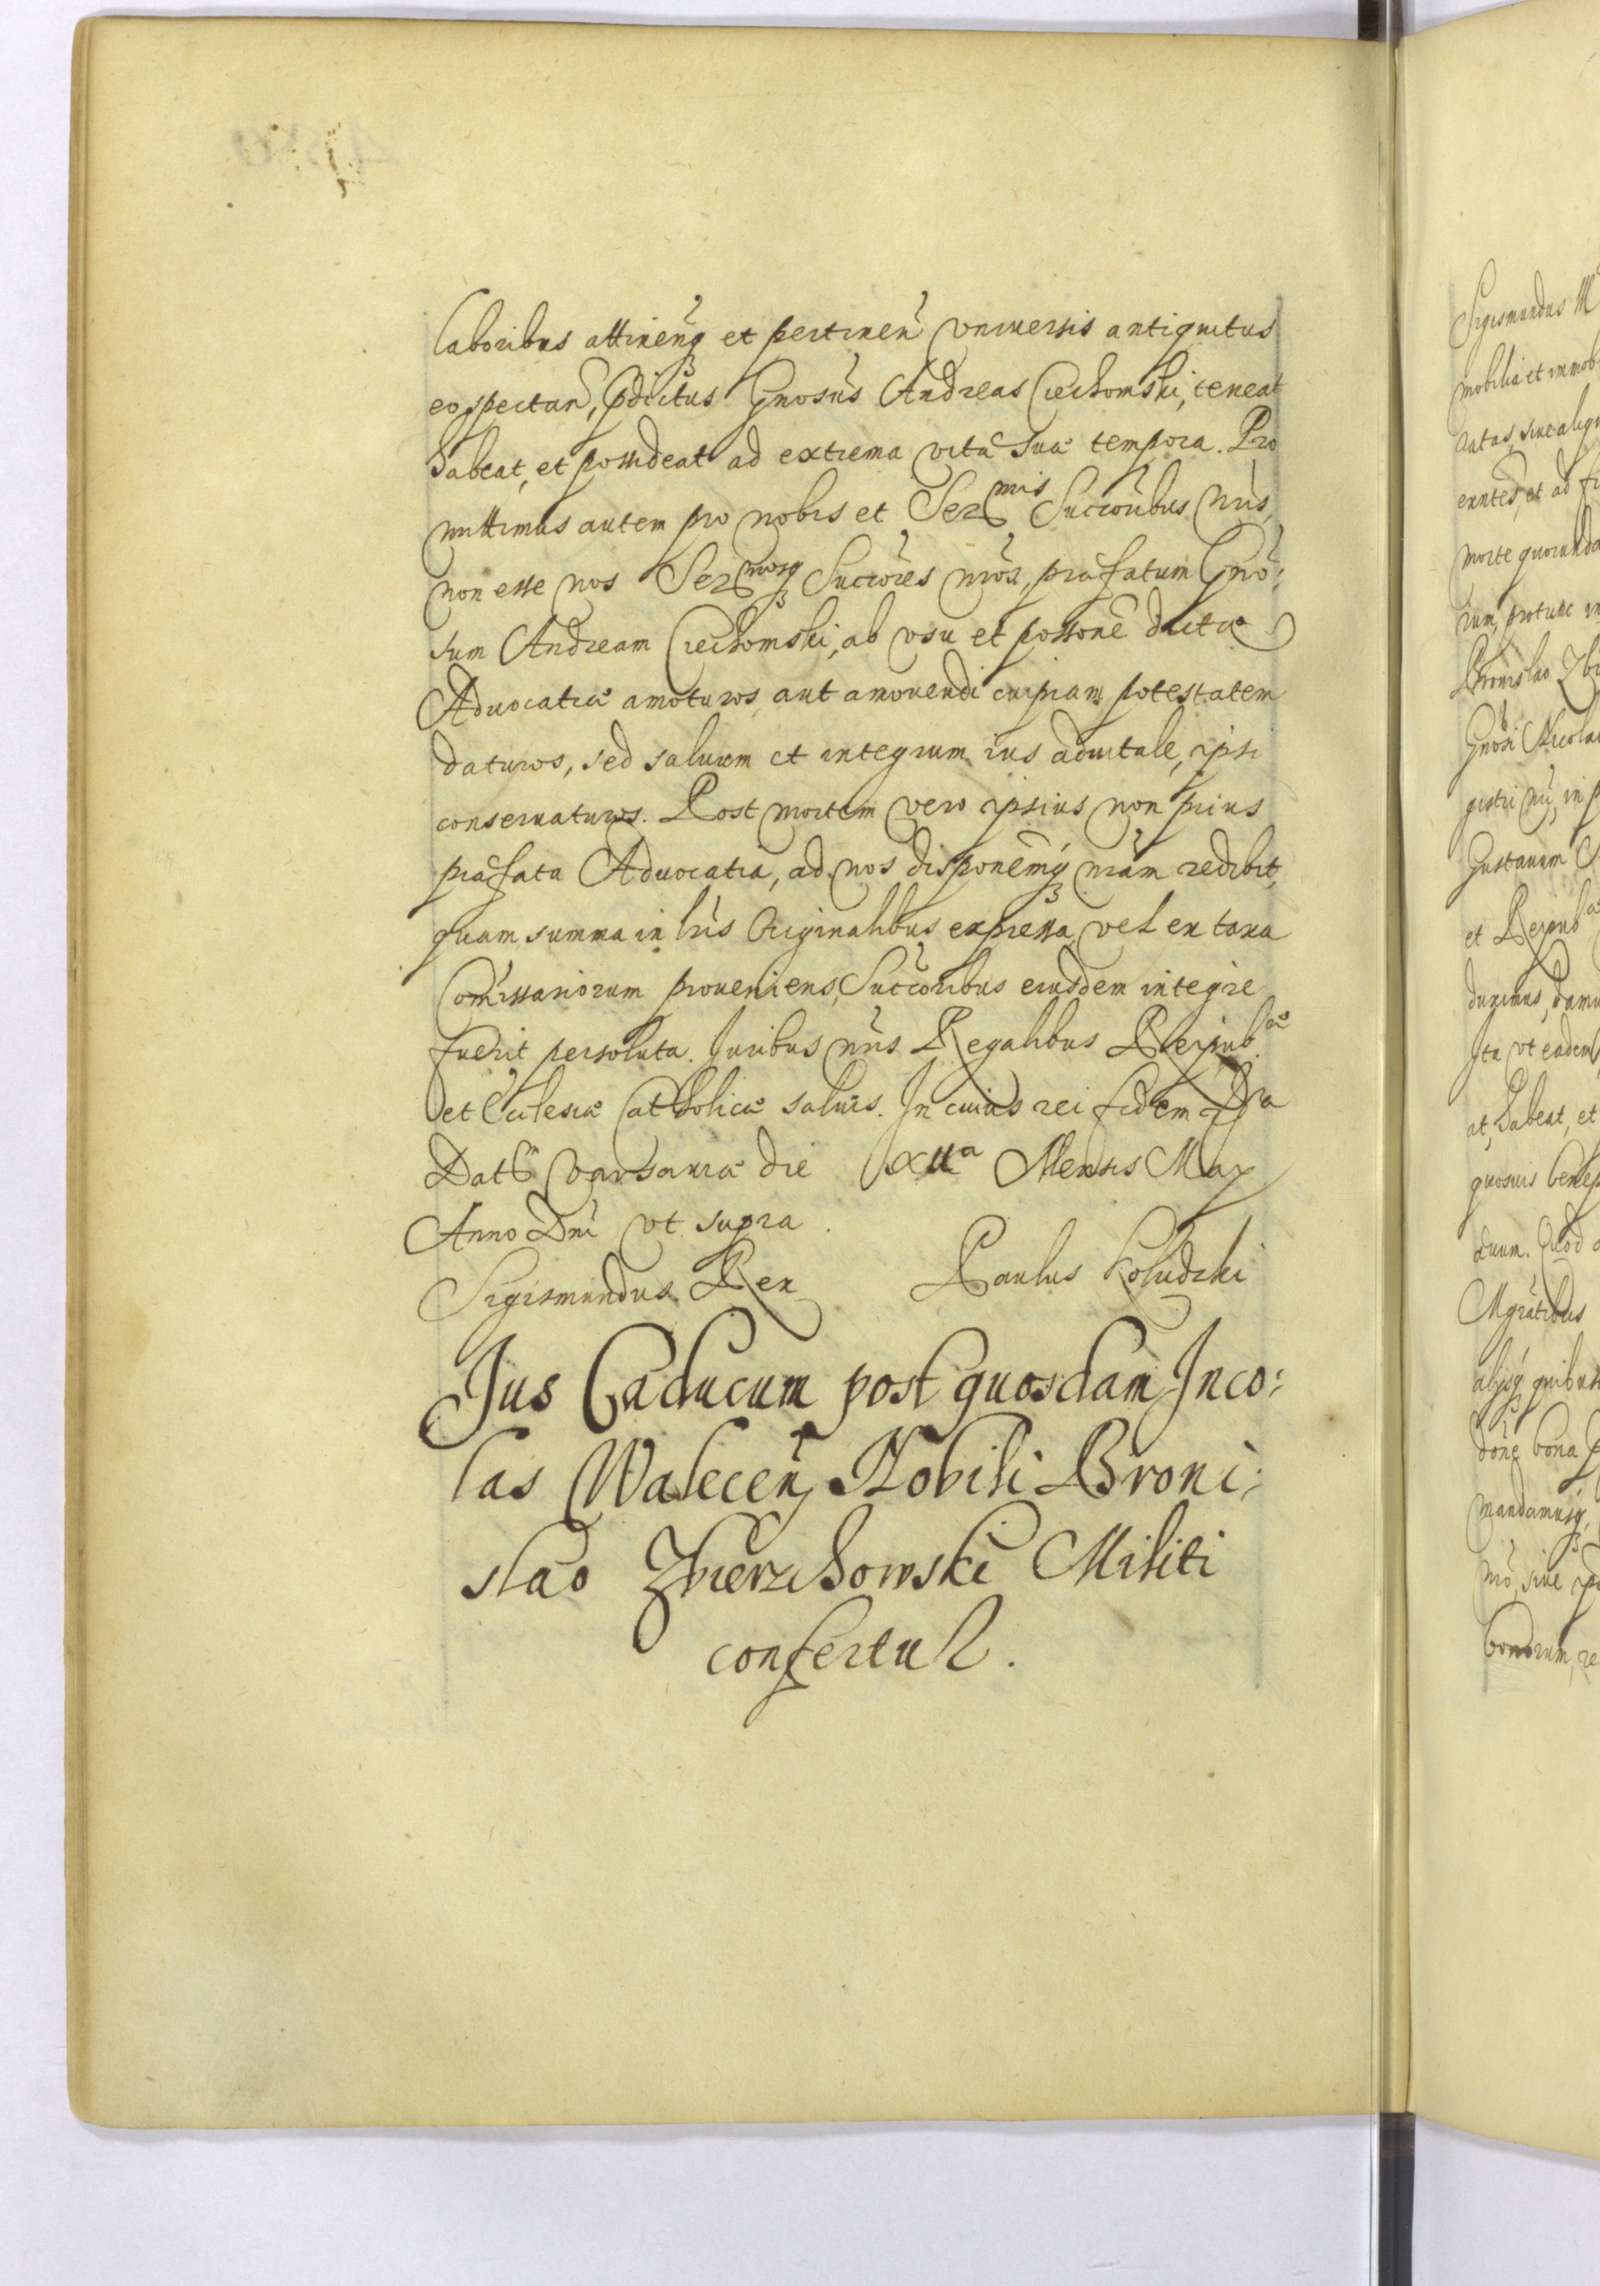 laboribus attinen̄q3 et pertinen̄ vniuersis antiquitus
eo spectan̄, p̄dictus Gnōsus Andreas Ciechomski, teneat
habeat, et possideat ad extrema vitæ suæ tempora. Pro
mittimus autem pro nobis et Ser^mis Succōribus nr̄is,
non esse nos Ser^mosq3 Succōres nr̄os, præfatum Gnō:
sum Andream Ciechomski, ab vsu et possōne dictæ
Aduocatiæ amoturos, aut amouendi cuipiam potestatem
daturos, sed saluum et integrum ius aduitale, ipsi
conseruaturos. Post mortem vero ipsius non prius
præfata Aduocatia, ad nos disponēmq3 nr̄am redibit,
quam summa in lr̄is Originalibus expressa, vel ex taxa
Com̄issariorum proueniens, Succōribus eiusdem integre
fuerit persoluta. Juribus nr̄is Regalibus Reipub^æ
et Eclesiæ Catholicæ saluis. In cuius rei fidem
Dat Varsauiæ die XII^a Mensis May
Anno Dnī vt supra.
Sigismundus Rex Paulus Koludzki
Jus Caducum post quosdam Inco:
las Walecen̄, Nobili Broni:
slao Zbierzchowski Militi
confertur.
Sigismundus
mobilia et immob
morte quorunda
Bronislao Zbi
Gnōsi Nicolai
Gustauum
et Reipub^æ
duximus, damu
Ita vt eadem
at, habeat, et
quosuis
duum. Quod
bona
mandamusq3,
nr̄o, siue
bonorum, re